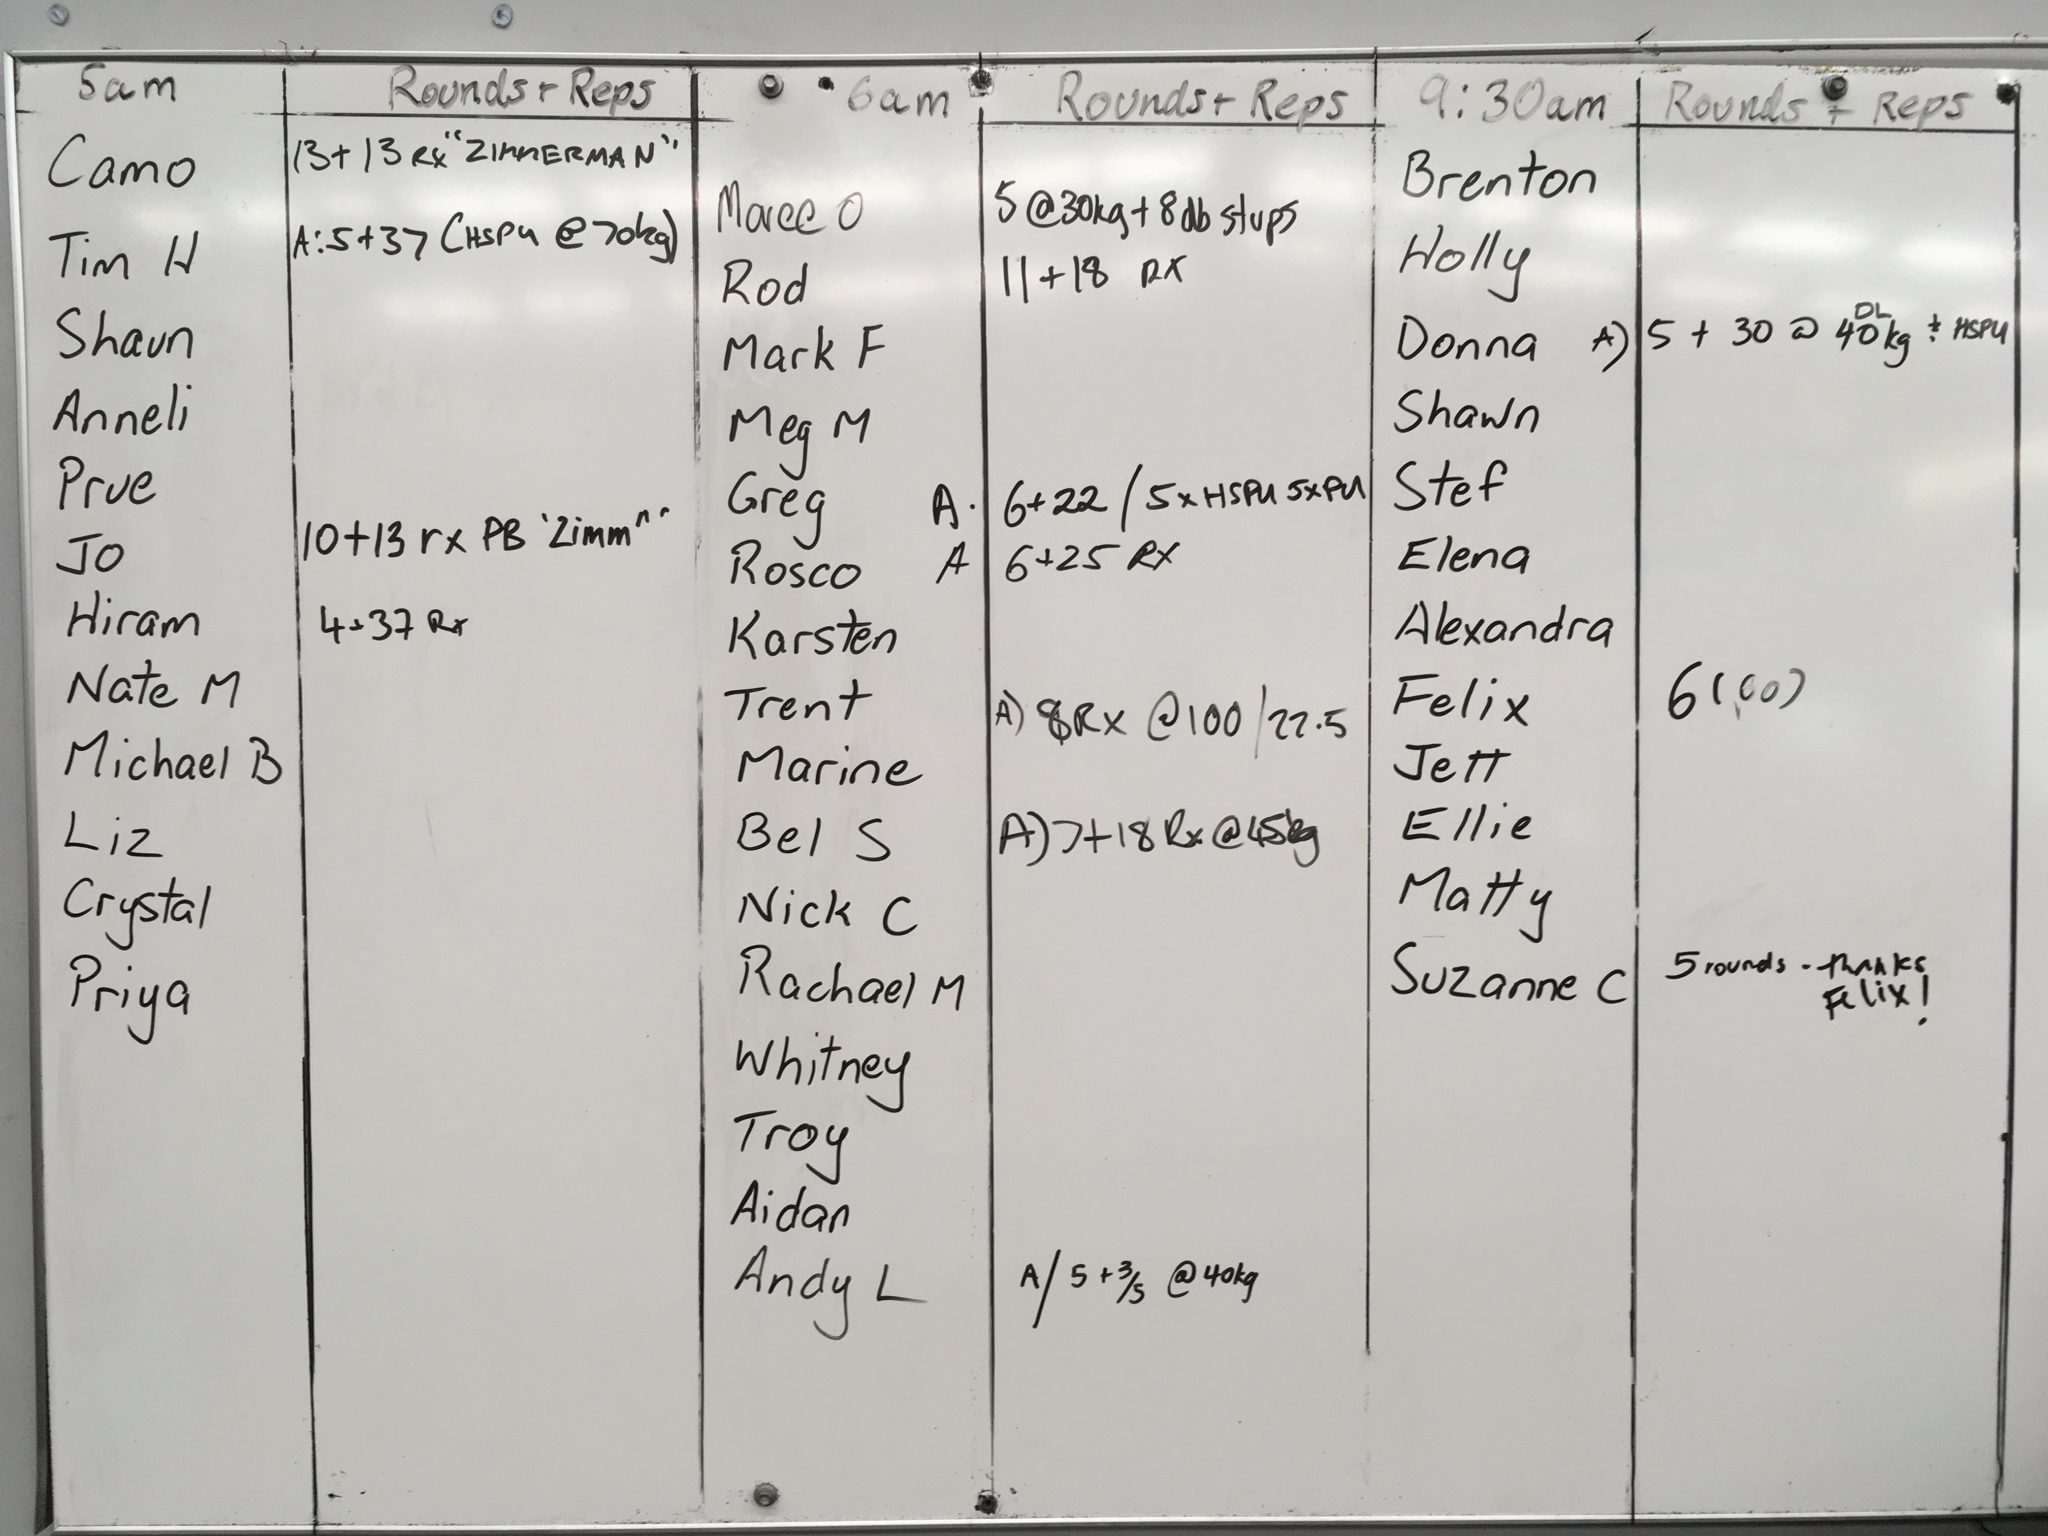 5am Rounds + Reps
Camo 13+13 Rx "ZIMMERMAN"
Tim H A: 5+37 (HSPU @ 70kg)
Shaun
Anneli
Prue
Jo 10+13 rx PB 'Zimm""
Hiram 4+37 Rx
Nate M
Michael B
Liz
Crystal
Priya
6am Rounds + Reps
Maree O 5 @30kg + 8 db stups
Rod 11+18 RX
Mark F
Meg M
Greg A. 6+22 / 5xHSPU 5xPU
Rosco A 6+25 RX
Karsten
Trent A) 8 Rx @100/22.5
Marine
Bel S A) 7+18 Rx @45kg
Nick C
Rachael M
Whitney
Troy
Aidan
Andy L A/ 5 + 3/5 @40kg
9:30am Rounds + Reps
Brenton
Holly
DL
Donna A) 5 + 30 @ 40kg + HSPU
Shawn
Stef
Elena
Alexandra
Felix 6
Jett
Ellie
Matty
Suzanne C 5 rounds - thanks
Felix!